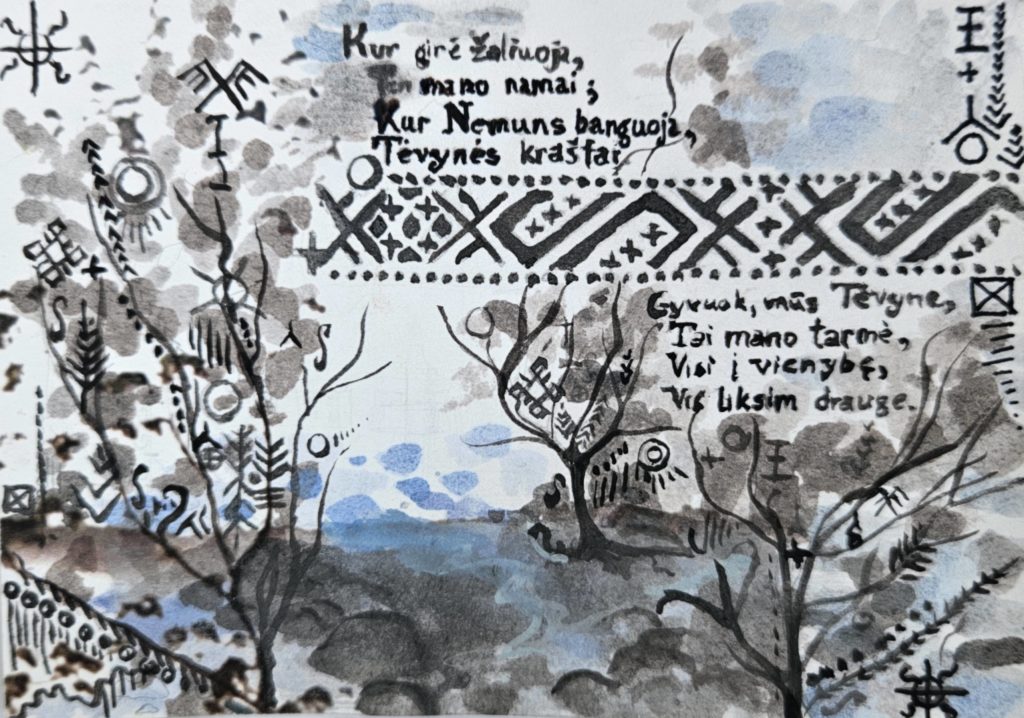 Kur girė žaliuoja,
Ten mano namai;
Kur Nemuns banguoja,
Tėvynės kraštai
Gyvuok, mūs Tėvyne,
Tai mano tarmė,
Visi į vienybę,
Vis liksim drauge.